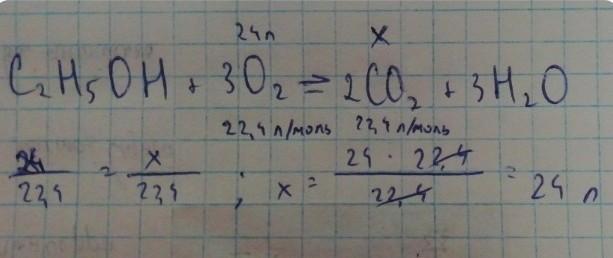 24л x
C₂H₅OH + 3O₂ = 2CO₂ + 3H₂O
22,4 л/моль 22,4 л/моль
24/22,4 = x/22,4 ; x = 24 · 22,4/22,4 = 24 л